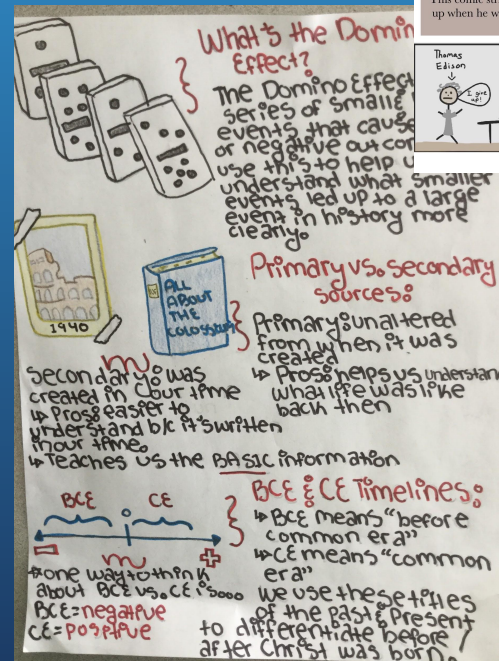 up when he w
Thomas
Edison
I give
up!
What's the Domin
Effect?
The Domino Effect
series of small
events, that cause
or negative out co
use this to help u
understand what smaller
events, led up to a large
event in history more
clearly.
1940
ALL
ABOUT
THE
COLOSSEUM
Primary vs. secondary
sources:
Primary: unaltered
from when it was
created
↳ Pros: helps us understan
what life was like
back then
Secondary: was
created in our time
↳ Pros: easier to
understand b/c it's written
in our time.
↳ Teaches us the BASIC information
BCE & CE Timelines:
↳ BCE means "before
common era"
↳ CE means "common
era"
we use these titles
of the past & present
to differentiate before/
after Christ was born.
BCE CE
0
- +
*one way to think
about BCE vs. CE is...
BCE = negative
CE = positive